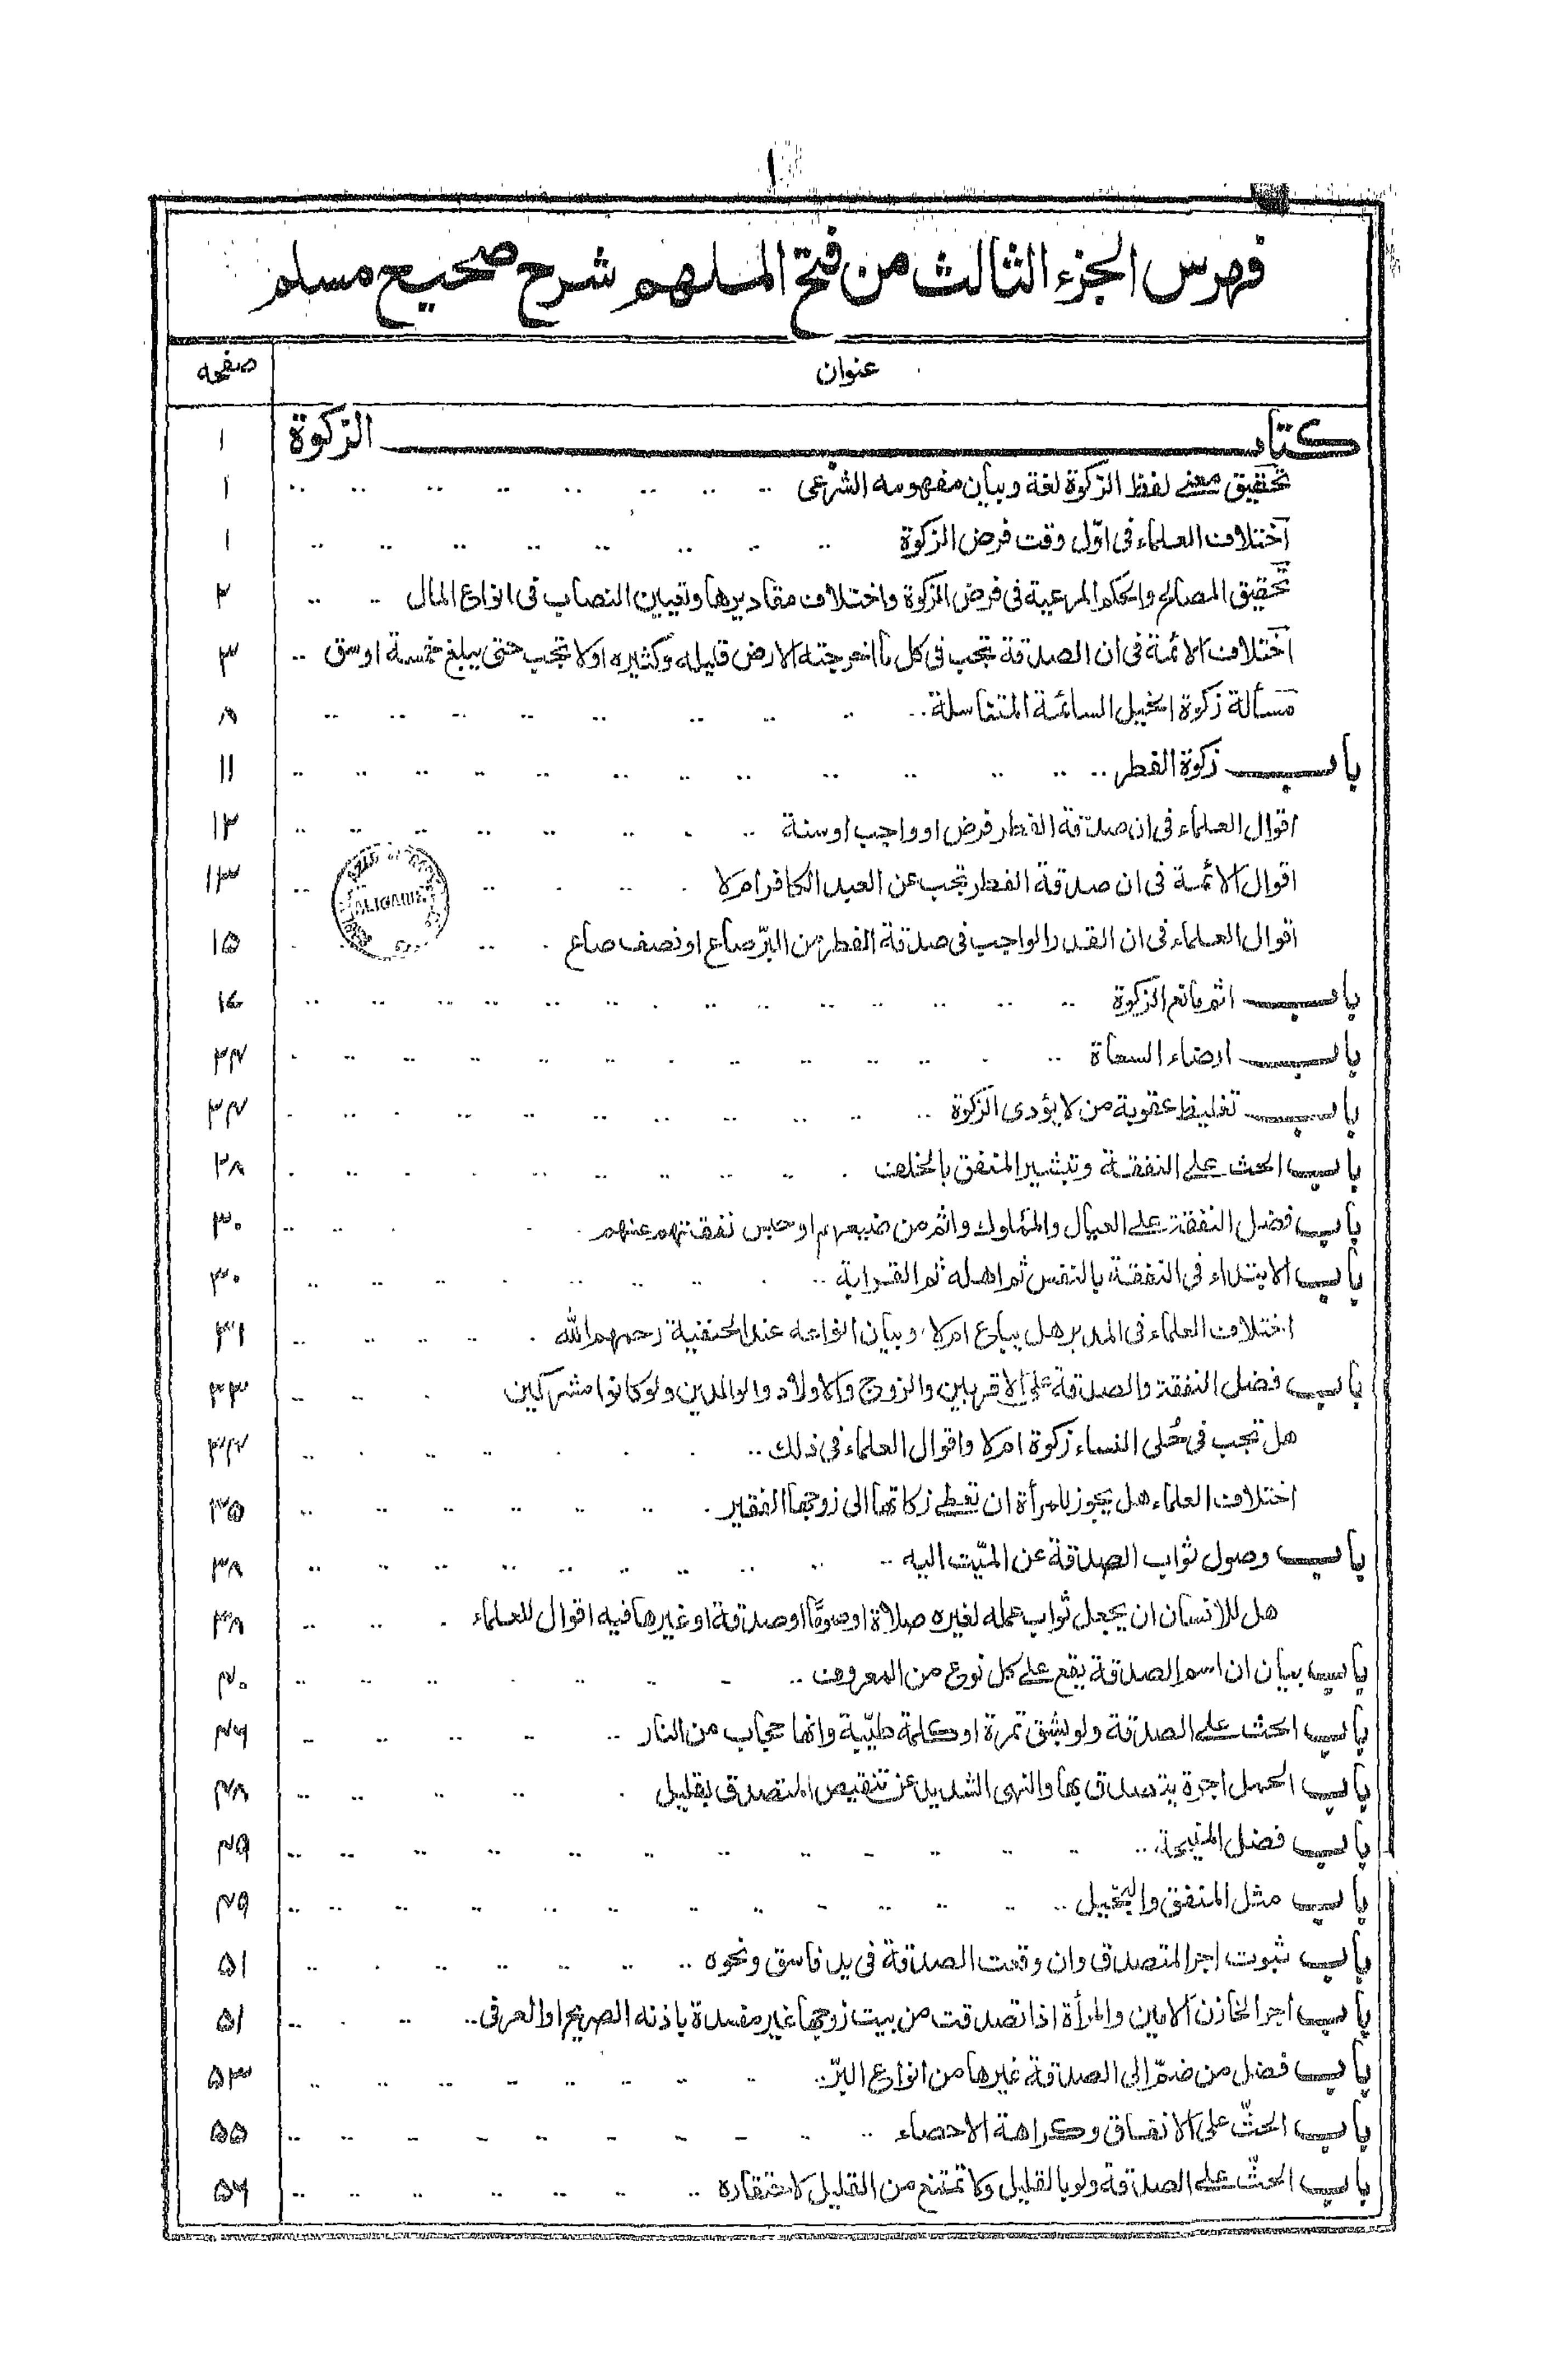 ۱
فهرس الجزء الثالث من فتح الملهم شرح صحيح مسلم
عنوان صفحه
كتاب الزكوة ۱
تحقيق معنے لفظ الزكوة لغة وبيان مفهومه الشرعى ۱
اختلاف العلماء فى اوّل وقت فرض الزكوة ۱
تحقيق المصالح والحكم المرعية فى فرض الزكوة واختلاف مقاديرها وتعيين النصاب فى انواع المال ۲
اختلاف الائمة فى ان الصدقة تجب فى كل ما اخرجته الارض قليله وكثيره اولا تجب حتى يبلغ خمسة اوسق ۳
مسألة زكوة الخيل السائمة المتناسلة ۸
باب زكوة الفطر ۱۱
اقوال العلماء فى ان صدقة الفطر فرض او واجب او سنة ۱۲
اقوال الائمة فى ان صدقة الفطر تجب عن العبد الكافر ام لا ۱۳
اقوال العلماء فى ان القدر الواجب فى صدقة الفطر من البرّ صاع او نصف صاع ۱۵
باب اثم مانع الزكوة
باب ارضاء السعاة
باب تغليظ عقوبة من لا يؤدى الزكوة
باب الحث علے النفقة وتبشير المنفق بالخلف ۲۸
باب فضل النفقة علے العيال والمملوك واثم من ضيعهم او حبس نفقتهم عنهم ۳۰
باب الابتداء فى النفقة بالنفس ثم اهله ثم القرابة ۳۰
اختلاف العلماء فى المدبر هل يباع ام لا، وبيان انواعه عند الحنفية رحمهم الله ۳۱
باب فضل النفقة والصدقة على الاقربين والزوج والاولاد والوالدين ولو كانوا مشركين ۳۳
هل تجب فى حُلى النساء زكوة ام لا واقوال العلماء فى ذلك ۳۴
اختلاف العلماء هل يجوز للمرأة ان تعطے زكاتها الى زوجها الفقير ۳۵
باب وصول ثواب الصدقة عن الميّت اليه ۳۸
هل للانسان ان يجعل ثواب عمله لغيره صلاة او صومًا او صدقة او غيرها فيه اقوال للعلماء ۳۸
باب بيان ان اسم الصدقة يقع علے كل نوع من المعروف ۴۰
باب الحث علے الصدقة ولو بشق تمرة او كلمة طيّبة وانها حجاب من النار ۴۶
باب الحمل اجرة يتصدق بها والنهى الشديد عن تنقيص المتصدق بقليل ۴۸
باب فضل المنيحة ۴۹
باب مثل المنفق والبخيل ۴۹
باب ثبوت اجر المتصدق وان وقعت الصدقة فى يد فاسق ونحوه ۵۱
باب اجر الخازن الامين والمرأة اذا تصدقت من بيت زوجها غير مفسدة باذنه الصريح او العرفى ۵۱
باب فضل من ضمّ الى الصدقة غيرها من انواع البرّ ۵۳
باب الحثّ على الانفاق وكراهة الاحصاء ۵۵
باب الحثّ علے الصدقة ولو بالقليل ولا تمتنع من القليل لاحتقاره ۵۶